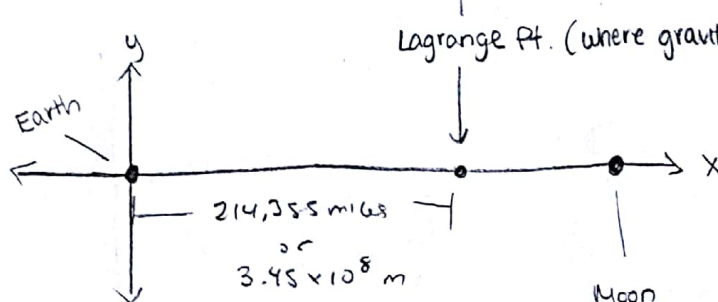 Lagrange Pt. (where gravit
y
Earth
X
214,355 miles
or
3.45 x 10⁸ m
Moon